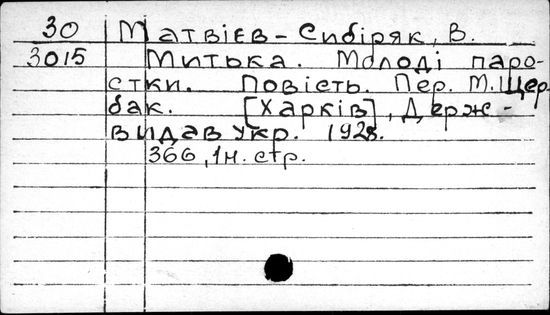 30 Матвієв-Сибіряк, В.
3015 Митька. Молоді паро-
стки. Повість. Пер. М. Щер
бак. [Харків], Держ-
видав Укр. 1928.
366, 1н. стр.